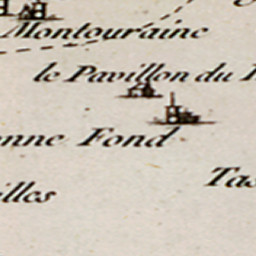 Montouraine
le Pavillon du
enne Fond
Tas
illes